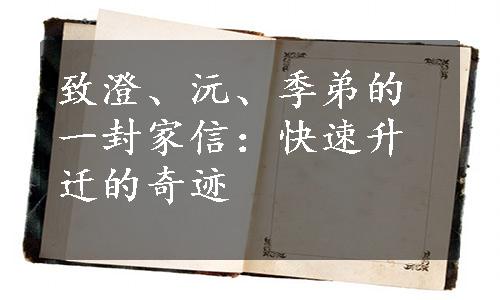 致澄、沅、季弟的
一封家信：快速升
迁的奇迹